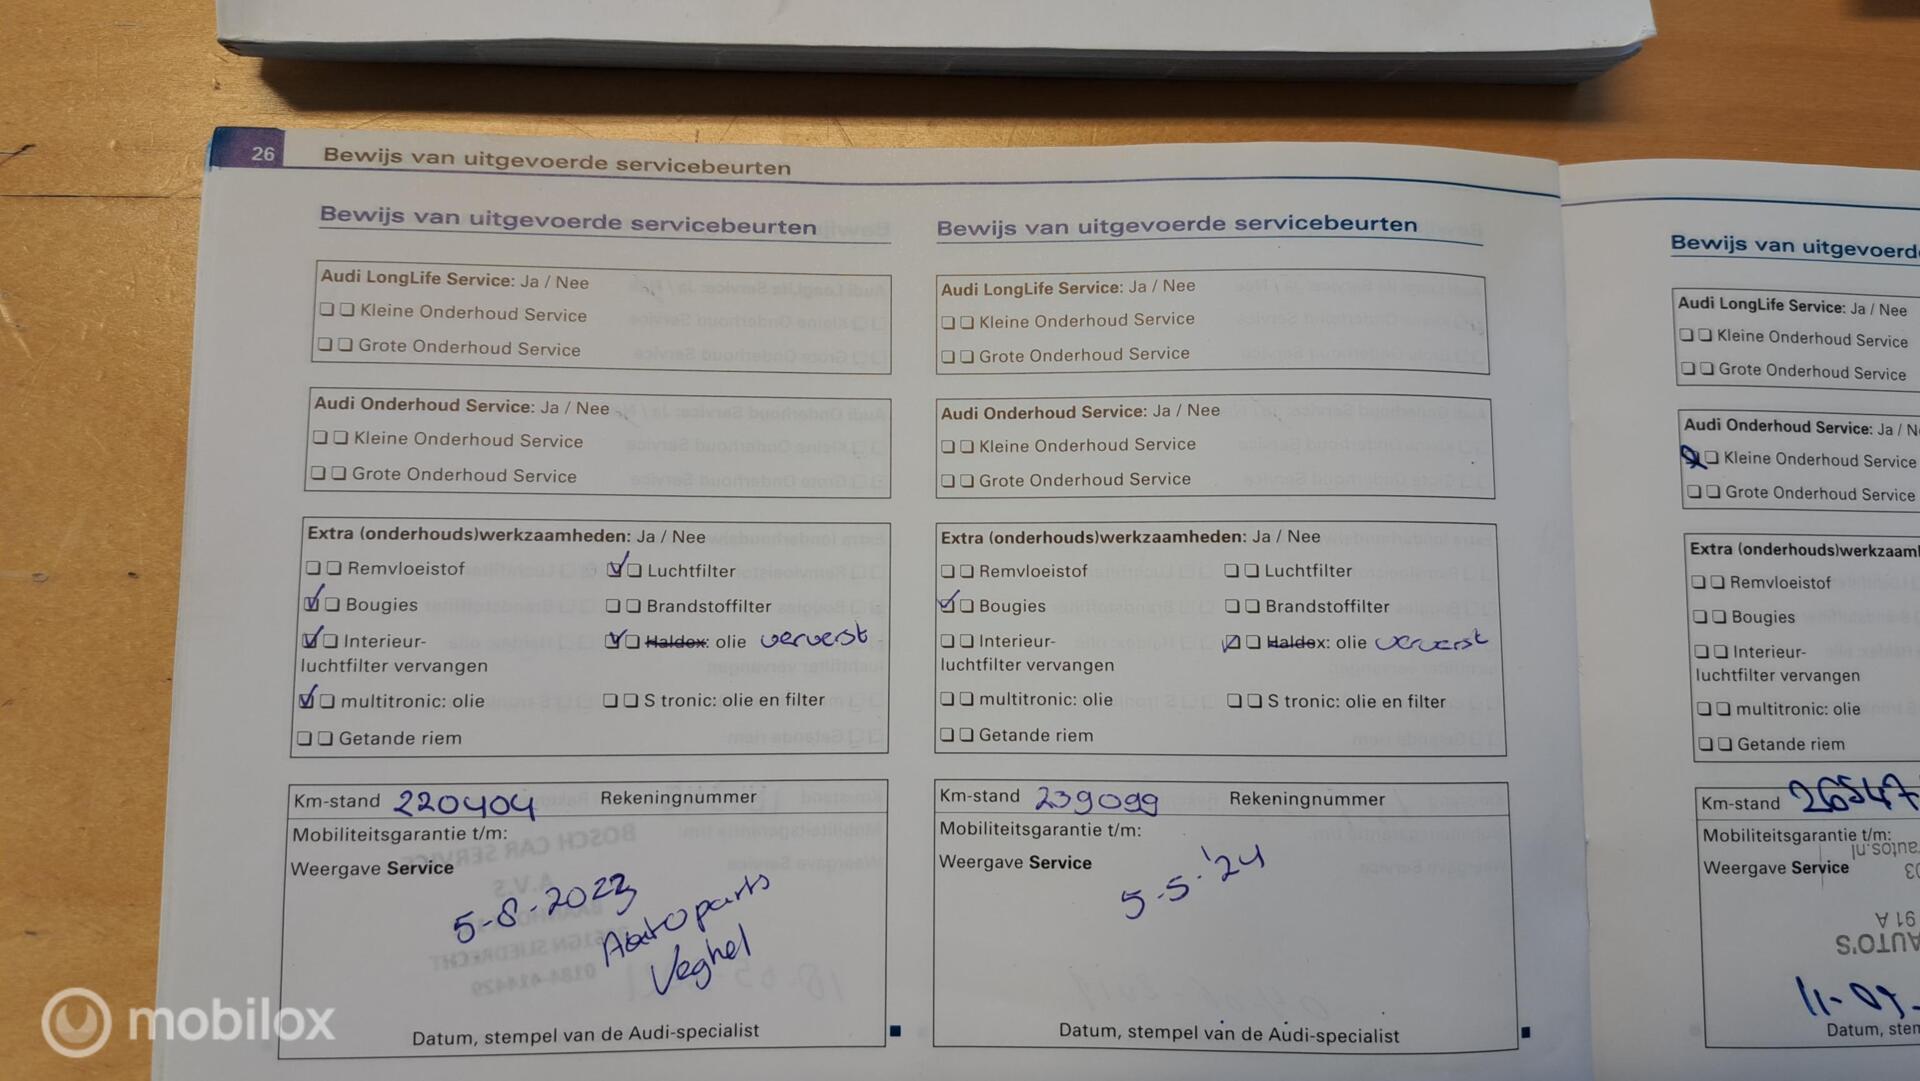 26 Bewijs van uitgevoerde servicebeurten
Bewijs van uitgevoerde servicebeurten
Audi LongLife Service: Ja / Nee
Kleine Onderhoud Service
Grote Onderhoud Service
Audi Onderhoud Service: Ja / Nee
Kleine Onderhoud Service
Grote Onderhoud Service
Extra (onderhouds)werkzaamheden: Ja / Nee
Remvloeistof Luchtfilter
Bougies Brandstoffilter
Interieur- Haldex: olie ververst
luchtfilter vervangen
multitronic: olie S tronic: olie en filter
Getande riem
Km-stand 220404 Rekeningnummer
Mobiliteitsgarantie t/m:
Weergave Service
5-8-2023
Autoparts
Veghel
Datum, stempel van de Audi-specialist
Bewijs van uitgevoerde servicebeurten
Audi LongLife Service: Ja / Nee
Kleine Onderhoud Service
Grote Onderhoud Service
Audi Onderhoud Service: Ja / Nee
Kleine Onderhoud Service
Grote Onderhoud Service
Extra (onderhouds)werkzaamheden: Ja / Nee
Remvloeistof Luchtfilter
Bougies Brandstoffilter
Interieur- Haldex: olie ververst
luchtfilter vervangen
multitronic: olie S tronic: olie en filter
Getande riem
Km-stand 239099 Rekeningnummer
Mobiliteitsgarantie t/m:
Weergave Service
5-5-'24
Datum, stempel van de Audi-specialist
Bewijs van uitgevoerd
Audi LongLife Service: Ja / Nee
Kleine Onderhoud Service
Grote Onderhoud Service
Audi Onderhoud Service: Ja / N
Kleine Onderhoud Service
Grote Onderhoud Service
Extra (onderhouds)werkzaam
Remvloeistof
Bougies
Interieur-
luchtfilter vervangen
multitronic: olie
Getande riem
Km-stand 26547
Mobiliteitsgarantie t/m:
Weergave Service
AUTO'S
Datum, sten
mobilox